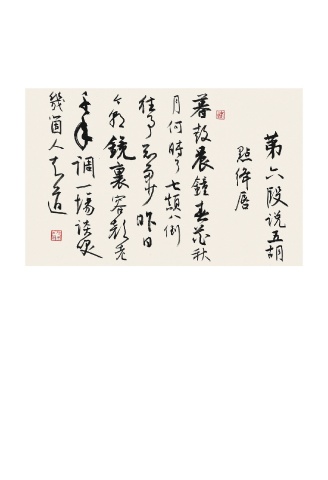 第六段说五胡
點绛唇
暮鼓晨鐘春花秋
月何時了七顛八倒
往事知多少昨日
今朝鏡裏容顏老
千年調一場談笑
幾箇人知道